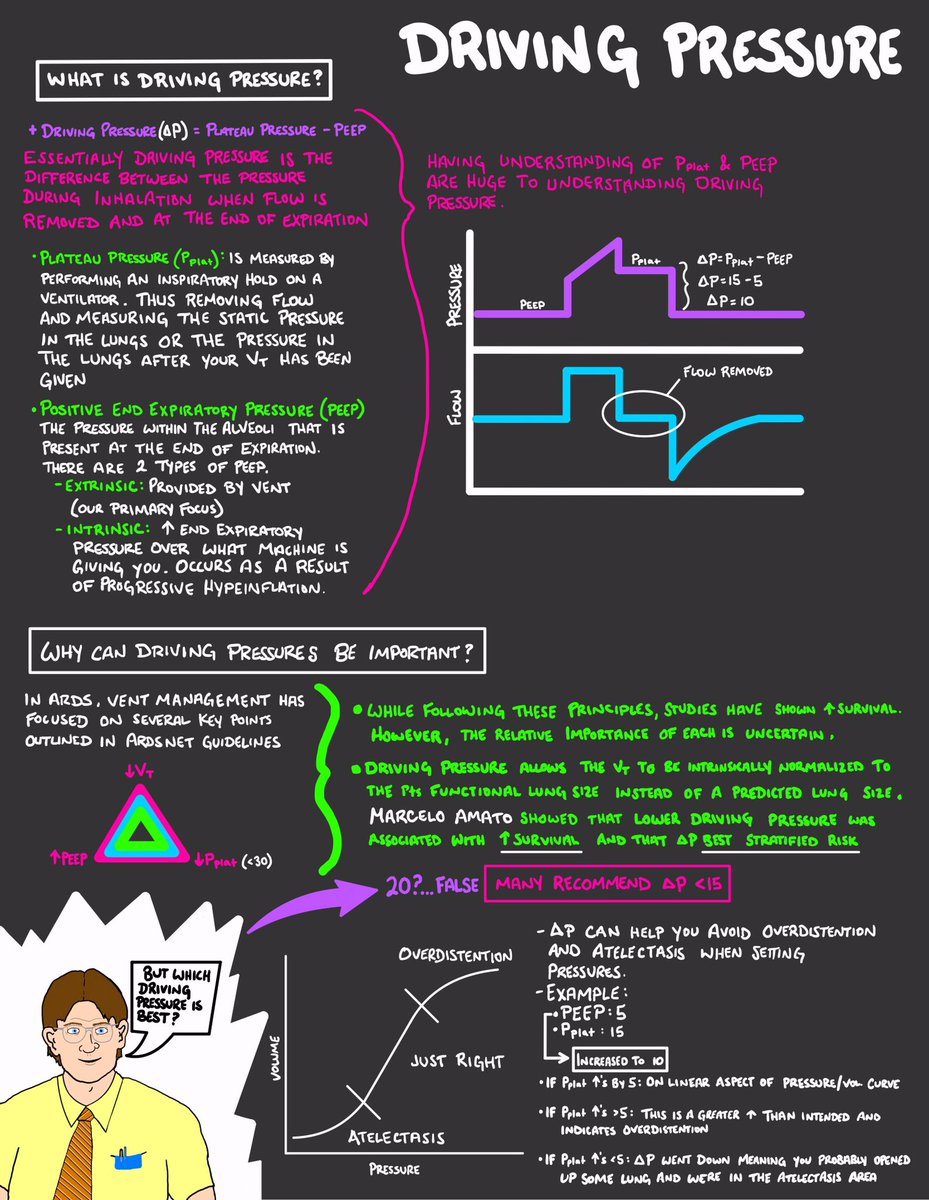 DRIVING PRESSURE
WHAT IS DRIVING PRESSURE?
+ DRIVING PRESSURE (ΔP) = PLATEAU PRESSURE - PEEP
ESSENTIALLY DRIVING PRESSURE IS THE
DIFFERENCE BETWEEN THE PRESSURE
DURING INHALATION WHEN FLOW IS
REMOVED AND AT THE END OF EXPIRATION
• PLATEAU PRESSURE (Pplat): IS MEASURED BY
PERFORMING AN INSPIRATORY HOLD ON A
VENTILATOR. THUS REMOVING FLOW
AND MEASURING THE STATIC PRESSURE
IN THE LUNGS OR THE PRESSURE IN
THE LUNGS AFTER YOUR VT HAS BEEN
GIVEN
• POSITIVE END EXPIRATORY PRESSURE (PEEP)
THE PRESSURE WITHIN THE ALVEOLI THAT IS
PRESENT AT THE END OF EXPIRATION.
THERE ARE 2 TYPES OF PEEP.
- EXTRINSIC: PROVIDED BY VENT
(OUR PRIMARY FOCUS)
- INTRINSIC: ↑ END EXPIRATORY
PRESSURE OVER WHAT MACHINE IS
GIVING YOU. OCCURS AS A RESULT
OF PROGRESSIVE HYPEINFLATION.
HAVING UNDERSTANDING OF Pplat & PEEP
ARE HUGE TO UNDERSTANDING DRIVING
PRESSURE.
PRESSURE
PEEP
Pplat
ΔP = Pplat - PEEP
ΔP = 15 - 5
ΔP = 10
FLOW
FLOW REMOVED
WHY CAN DRIVING PRESSURES BE IMPORTANT?
IN ARDS, VENT MANAGEMENT HAS
FOCUSED ON SEVERAL KEY POINTS
OUTLINED IN ARDSNET GUIDELINES
↓VT
↑PEEP
↓Pplat (<30)
• WHILE FOLLOWING THESE PRINCIPLES, STUDIES HAVE SHOWN ↑ SURVIVAL.
HOWEVER, THE RELATIVE IMPORTANCE OF EACH IS UNCERTAIN.
• DRIVING PRESSURE ALLOWS THE VT TO BE INTRINSICALLY NORMALIZED TO
THE Pts FUNCTIONAL LUNG SIZE INSTEAD OF A PREDICTED LUNG SIZE.
MARCELO AMATO SHOWED THAT LOWER DRIVING PRESSURE WAS
ASSOCIATED WITH ↑ SURVIVAL AND THAT ΔP BEST STRATIFIED RISK
20?... FALSE
MANY RECOMMEND ΔP <15
BUT WHICH
DRIVING
PRESSURE IS
BEST?
VOLUME
OVERDISTENTION
JUST RIGHT
ATELECTASIS
PRESSURE
- ΔP CAN HELP YOU AVOID OVERDISTENTION
AND ATELECTASIS WHEN SETTING
PRESSURES.
- EXAMPLE:
• PEEP: 5
• Pplat: 15
INCREASED TO 10
• IF Pplat ↑'s BY 5: ON LINEAR ASPECT OF PRESSURE/VOL CURVE
• IF Pplat ↑'s >5: THIS IS A GREATER ↑ THAN INTENDED AND
INDICATES OVERDISTENTION
• IF Pplat ↑'s <5: ΔP WENT DOWN MEANING YOU PROBABLY OPENED
UP SOME LUNG AND WERE IN THE ATELECTASIS AREA